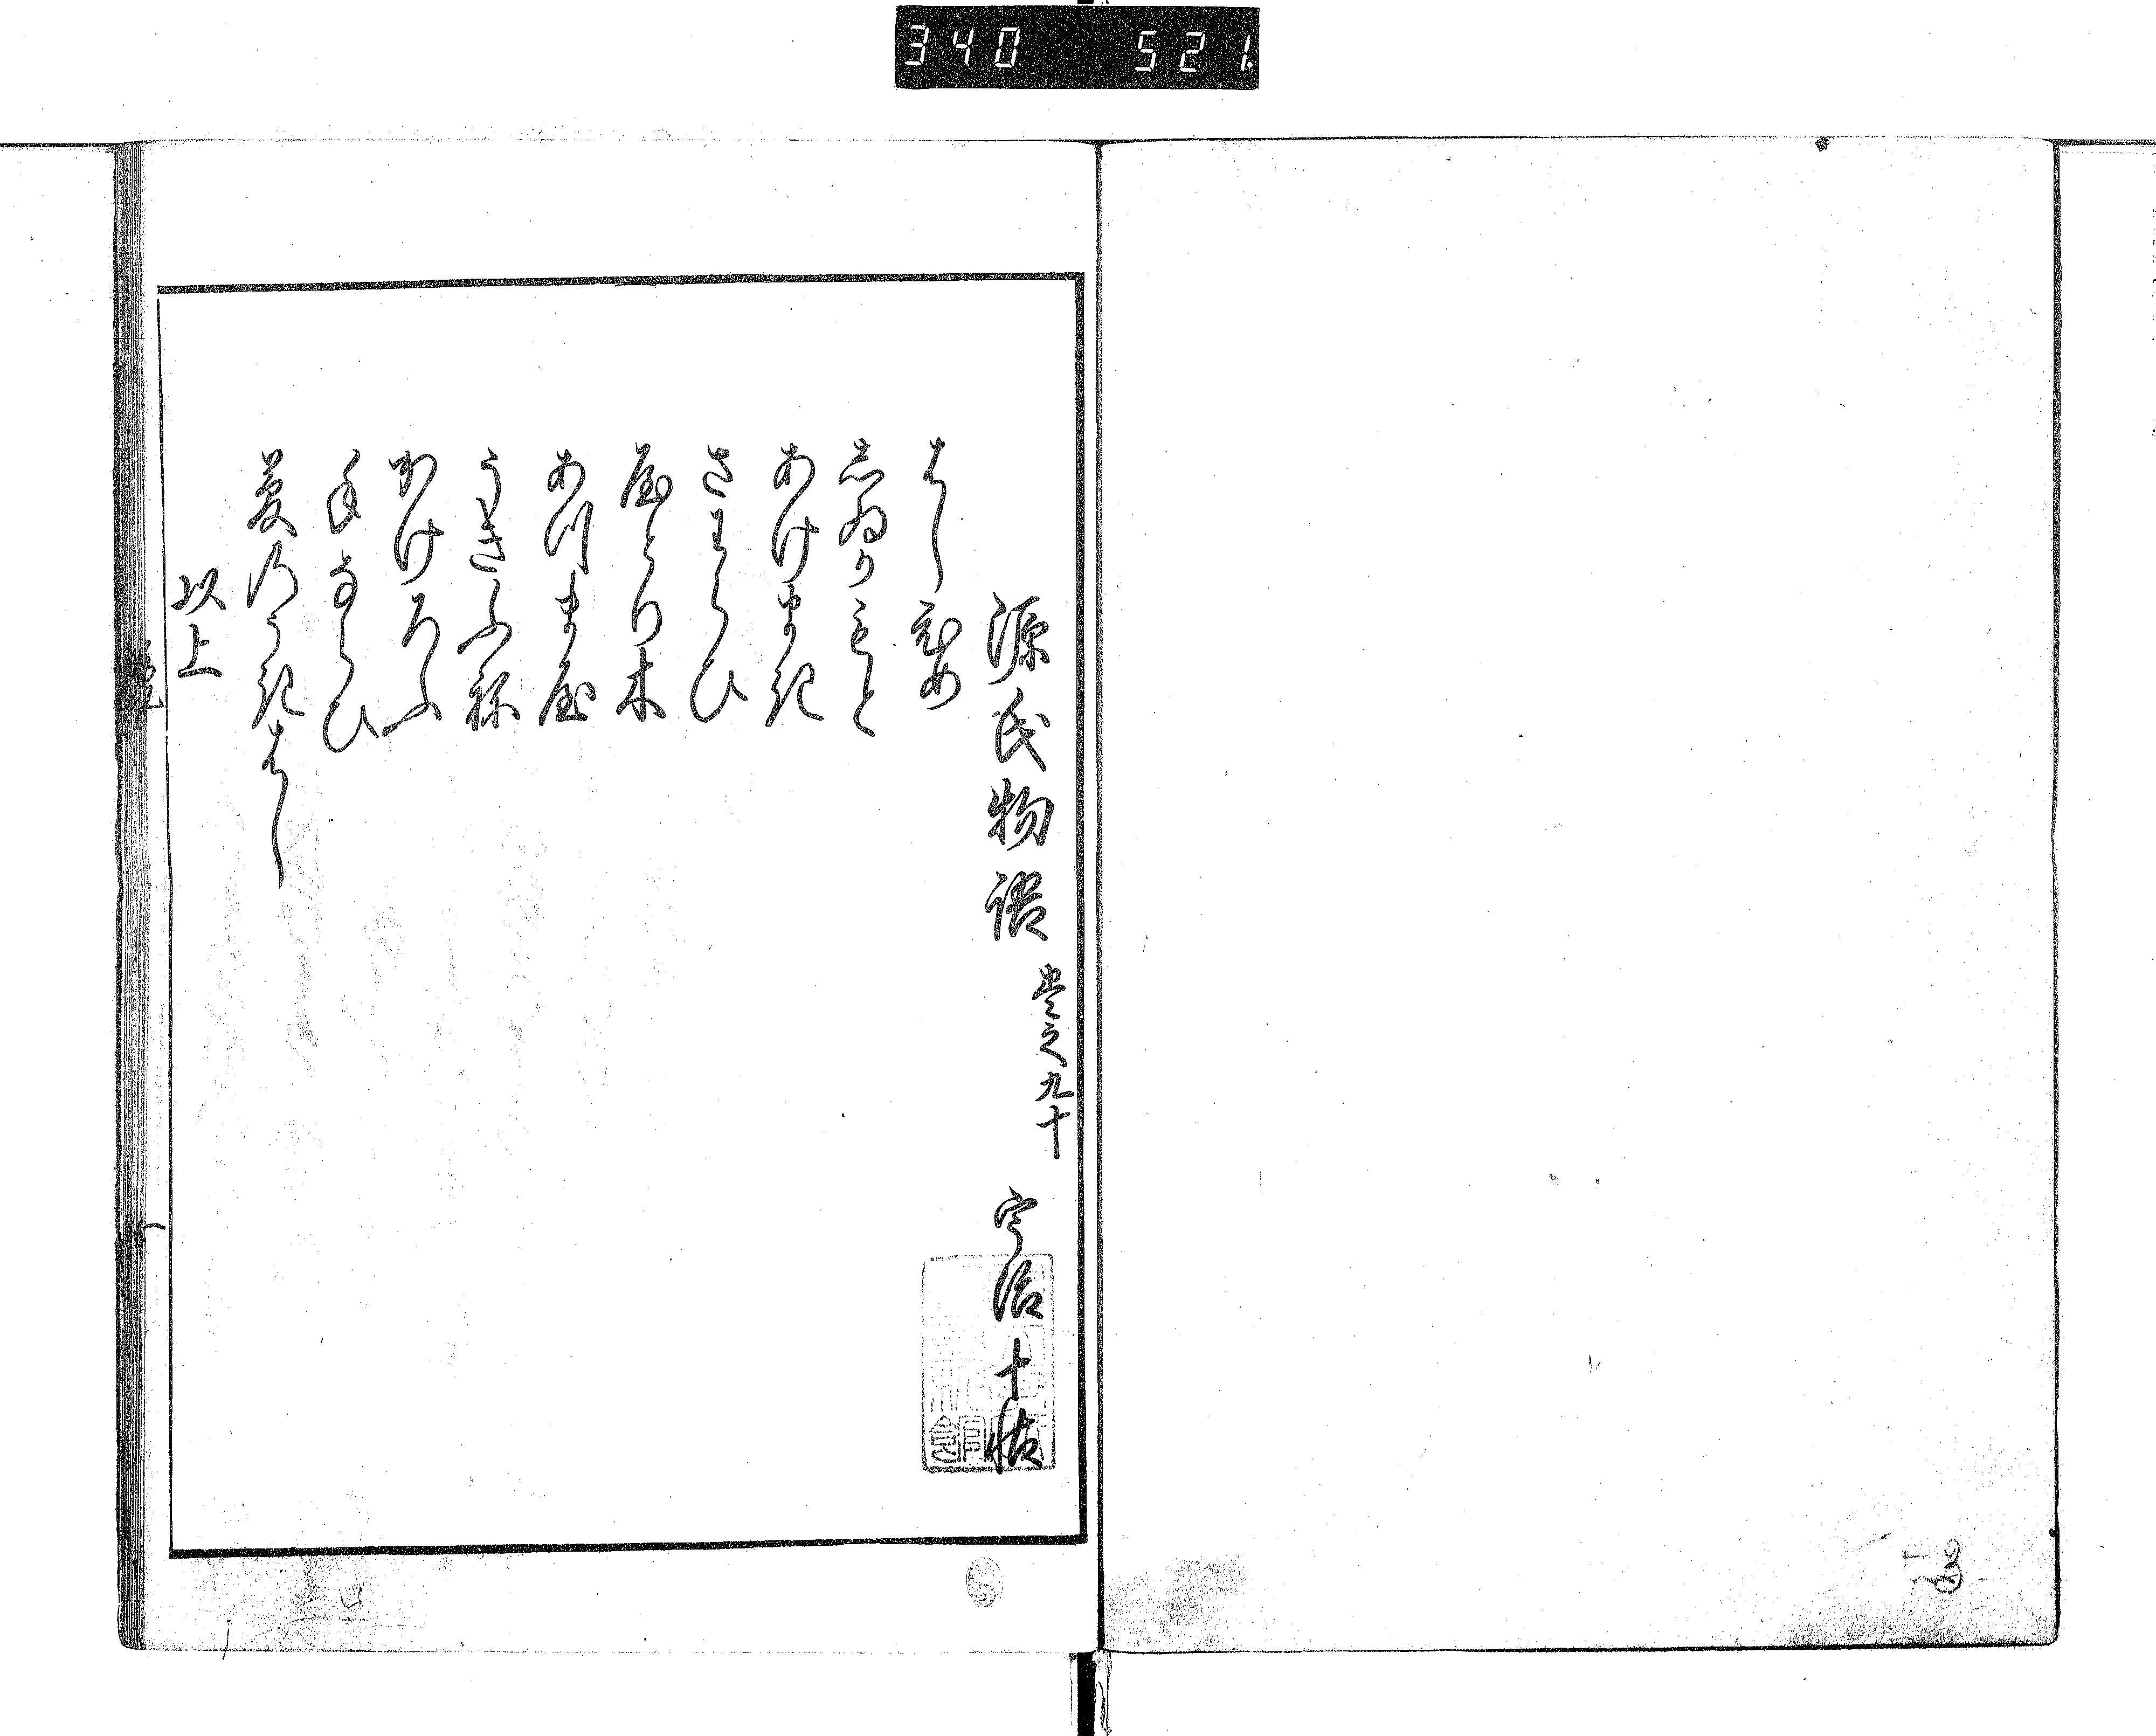 340 521.
源氏物語 巻之九十 宇治十帖
はしひめ
しゐかもと
あけまき
さわらひ
屋とり木
あつま屋
うきふね
かけろふ
手ならひ
夢のうきはし
以上